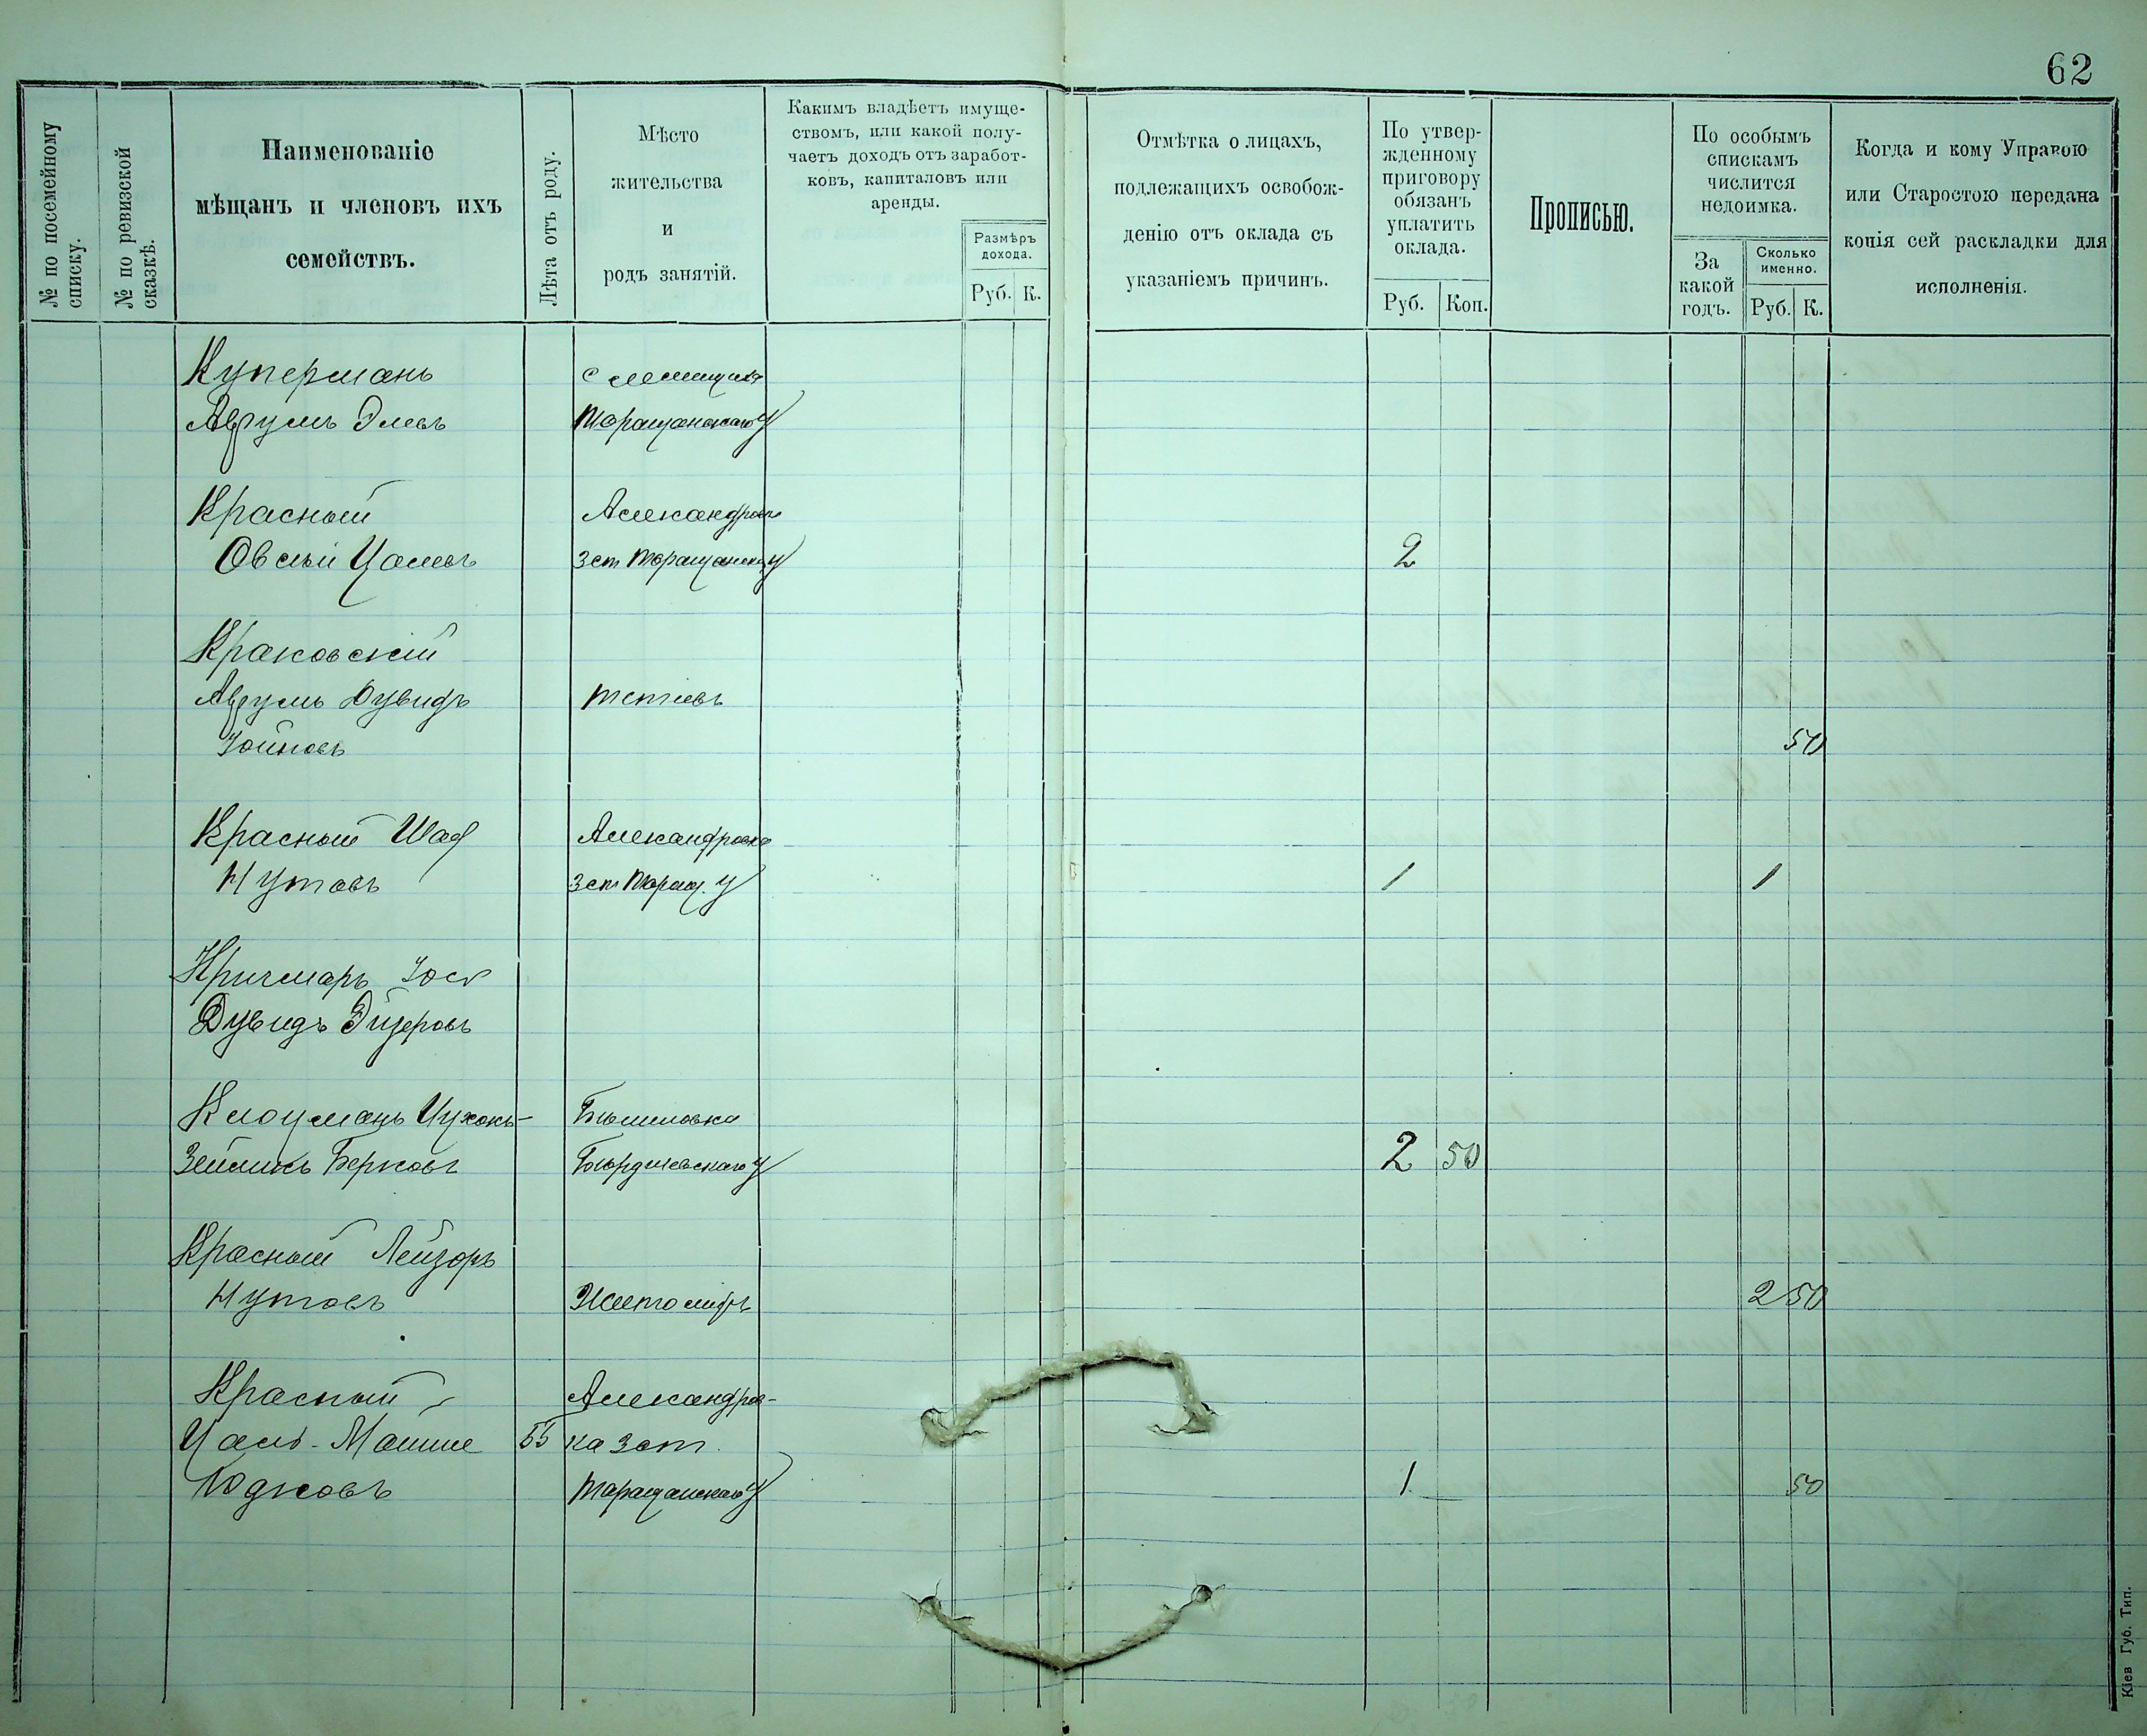 62
№ по посемейному списку.
№ по ревизской сказкѣ.
Наименованіе
мѣщанъ и членовъ ихъ
семействъ.
Лѣта отъ роду.
Мѣсто
жительства
и
родъ занятій.
Какимъ владѣетъ имуще-
ствомъ, или какой полу-
чаетъ доходъ отъ заработ-
ковъ, капиталовъ или
аренды.
Размѣръ
дохода.
Руб. К.
Отмѣтка о лицахъ,
подлежащихъ освобож-
денію отъ оклада съ
указаніемъ причинъ.
По утвер-
жденному
приговору
обязанъ
уплатить
оклада.
Руб. Коп.
Прописью.
По особымъ
спискамъ
числится
недоимка.
За
какой
годъ.
Сколько
именно.
Руб. К.
Когда и кому Управою
или Старостою передана
копія сей раскладки для
исполненія.
Куперманъ с
Аврумъ Таращанскаго У
Красный Александровка
Овсѣй 3 ст Таращанск У 2
Краковскій
Аврумъ Дувидъ Тетіевъ
Іойновъ 50
Красный Шая Александровка
Нутовъ 3 ст Таращ. У 1 1
Кричмаръ Іос
Дувидъ
Клоцманъ Ицхокъ-
Зейликъ Берковъ Бердичевскаго У 2 50
Красный Лейзоръ
Нутовъ Житоміръ 2 50
Красный Александров-
Цаль-Мошше 55 ка 3 ст.
Юдковъ Таращанскаго У 1 50
Кіев Губ. Тип.